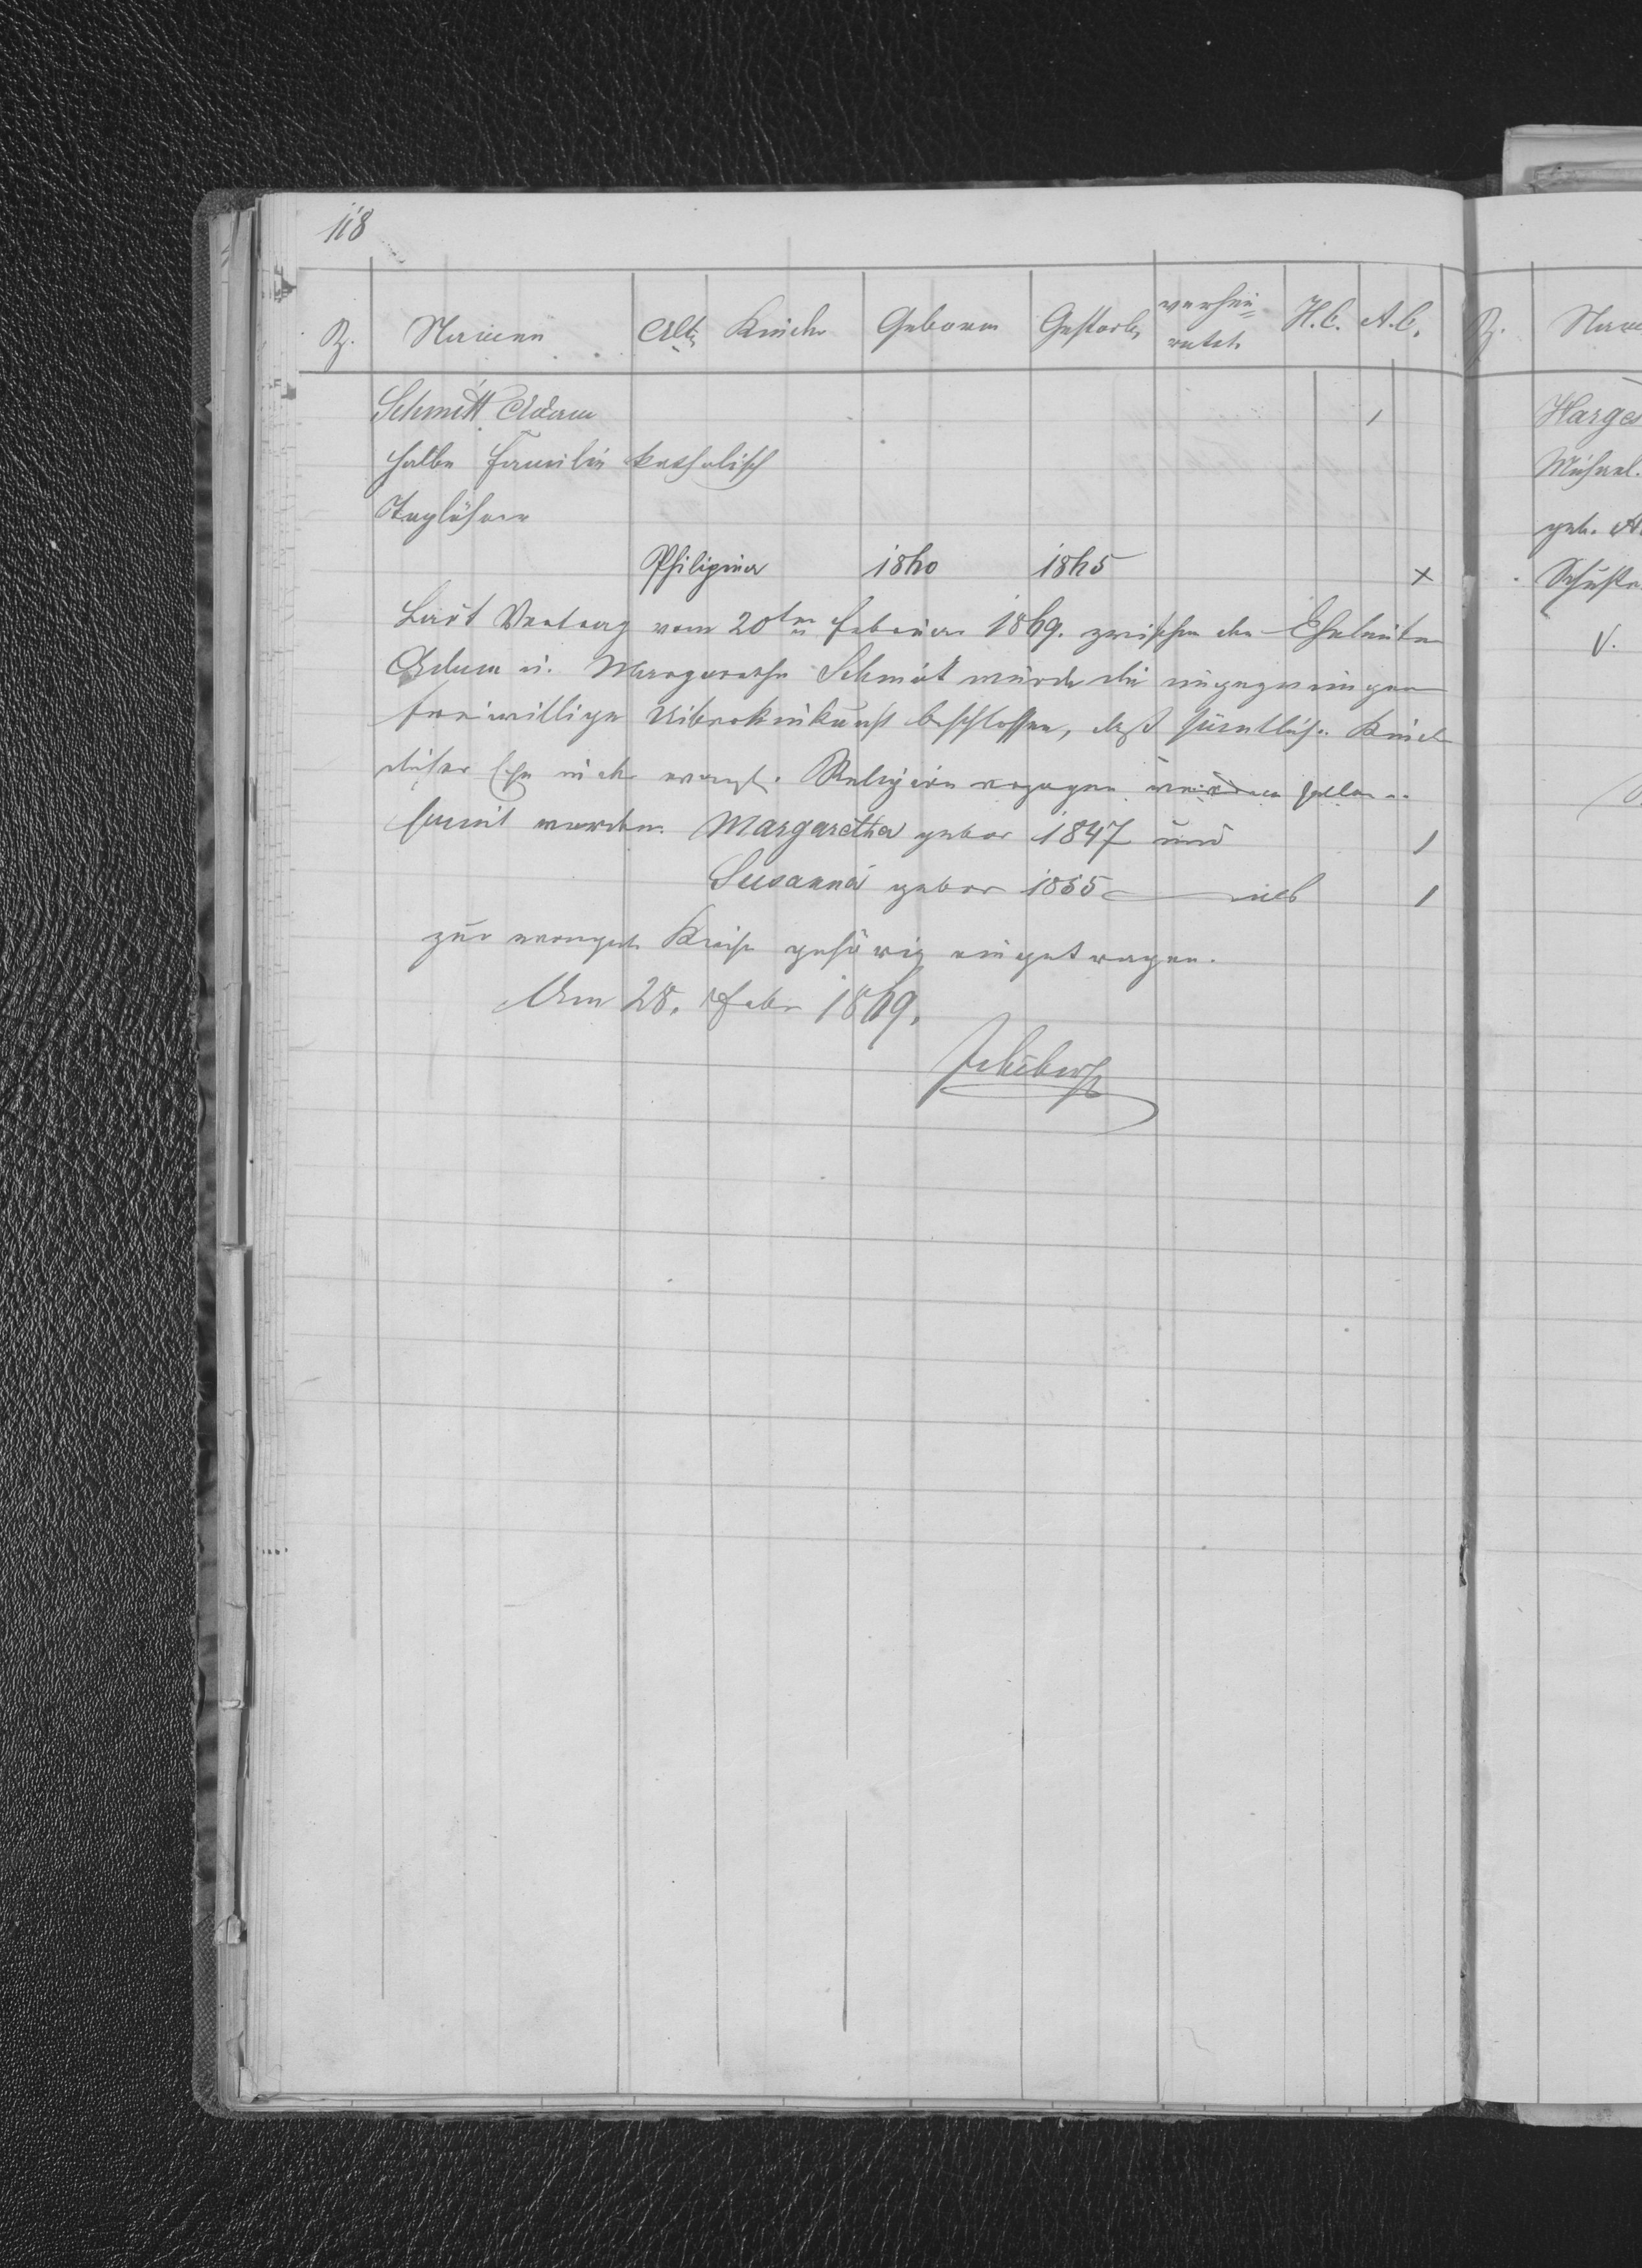 118
Z. Namen Alt. Kinder Geboren Gestorb. verhei=
ratet H.C. A.C.
Schmitt Adam
halbe Familie katholisch
Taglöhner
Philipina 1860 1865 x
Laut Vertrag vom 20ten Februar 1869. zwischen den Eheleuten
Adam u. Margarethe Schmit wurde die
freiwillige Uibereinkunft beschlossen, daß sämtliche Kinder
dieser Ehe in der evangl. Religion erzogen werden sollen
somit werden Margaretha gebor 1847 und
Susanna gebor 1865 als
zur evangel. Kirche gehörig eingetragen.
Am 28. Febr 1869.
Z. Name
Harges
Michael.
geb. A.
Schuster
V.